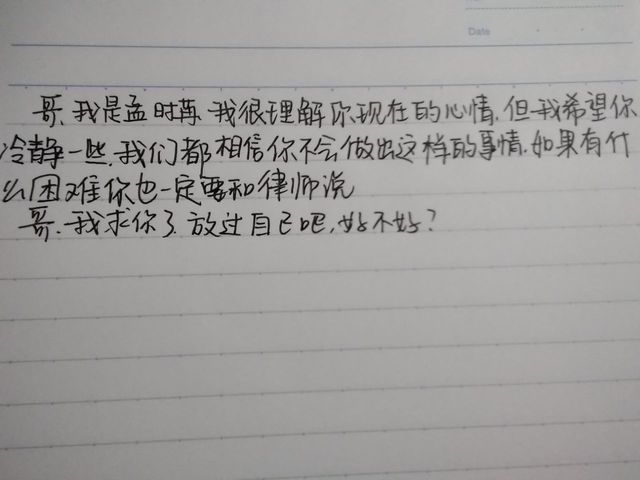 Date
哥,我是孟时苒,我很理解你现在的心情,但我希望你
冷静一些,我们都相信你不会做出这样的事情,如果有什
么困难你也一定要和律师说
哥,我求你了,放过自己吧,好不好?